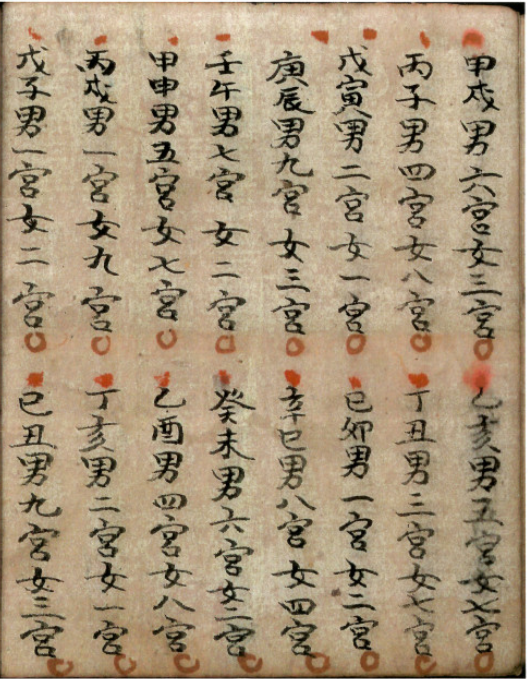 甲戌男六宮女三宮 乙亥男五宮女七宮
丙子男四宮女八宮 丁丑男三宮女七宮
戊寅男二宮女一宮 己卯男一宮女二宮
庚辰男九宮女三宮 辛巳男八宮女四宮
壬午男七宮女二宮 癸未男六宮女二宮
甲申男五宮女七宮 乙酉男四宮女八宮
丙戌男一宮女九宮 丁亥男二宮女一宮
戊子男一宮女二宮 己丑男九宮女三宮